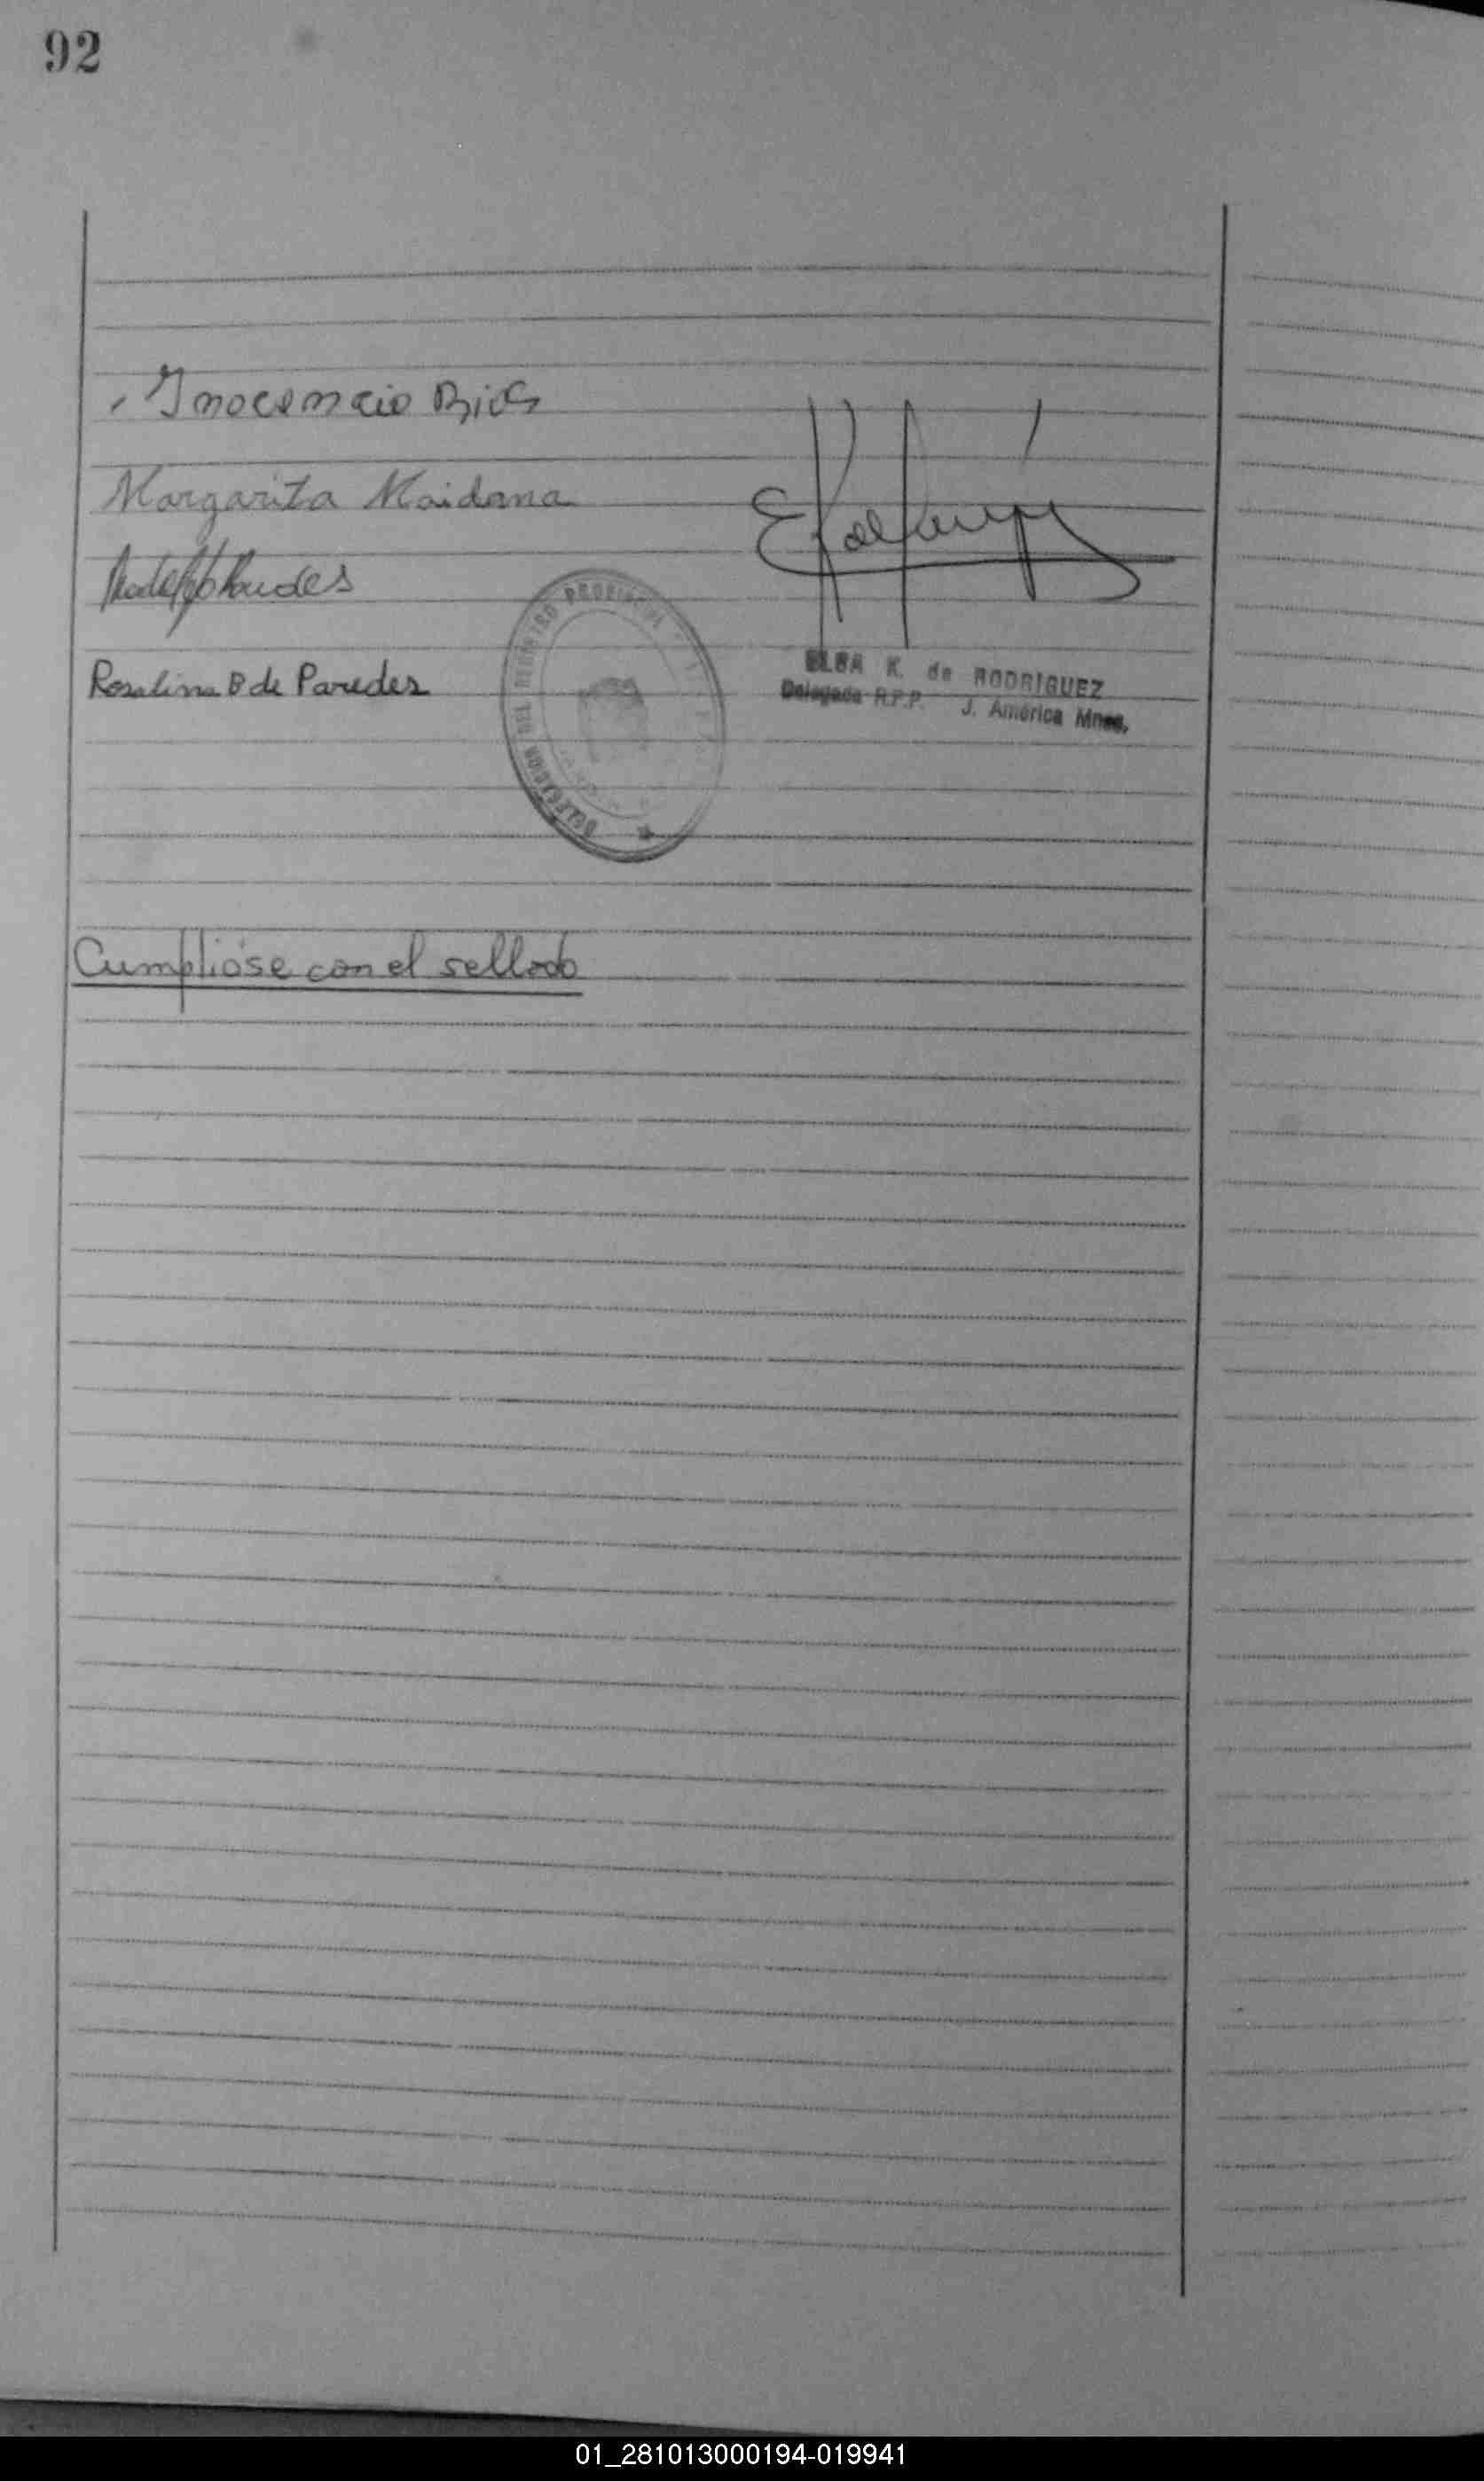 92
Inocencio Rios
Margarita Maidana
Rosalina B de Paredes
DELEGACION DEL REGISTRO PROVINCIAL
ELSA K. de RODRIGUEZ
Delegada R.P.P. J. América Mnes.
Cumplióse con el sellado
01_281013000194-019941